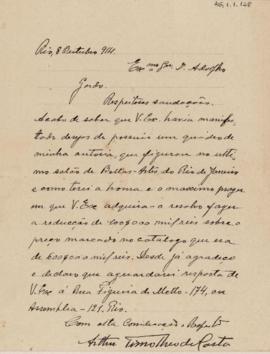 AG.1.1.128
Rio, 8 Outubro 911.
Exmo Snr. Dr. Adolpho
Gordo.
Respeitosas saudações.
Acabo de saber que V. Exa. havia manifes-
tado desejo de possuir um quadro de
minha autoria, que figurou no ulti-
mo salão de Bellas-Artes do Rio de Janeiro
e como teria a honra e o maximo prazer
em que V. Exa adquira-o resolvo fazer
a reducção de mil réis sobre o
preço marcado no catalogo que era
de mil réis. Desde já agradeço
e declaro que aguardarei resposta de
V. Exa á Rua Figueira de Mello - 174, ou
Assembléa - 121, Rio.
Com alta Consideração e Respeito
Arthur Timotheo da Costa